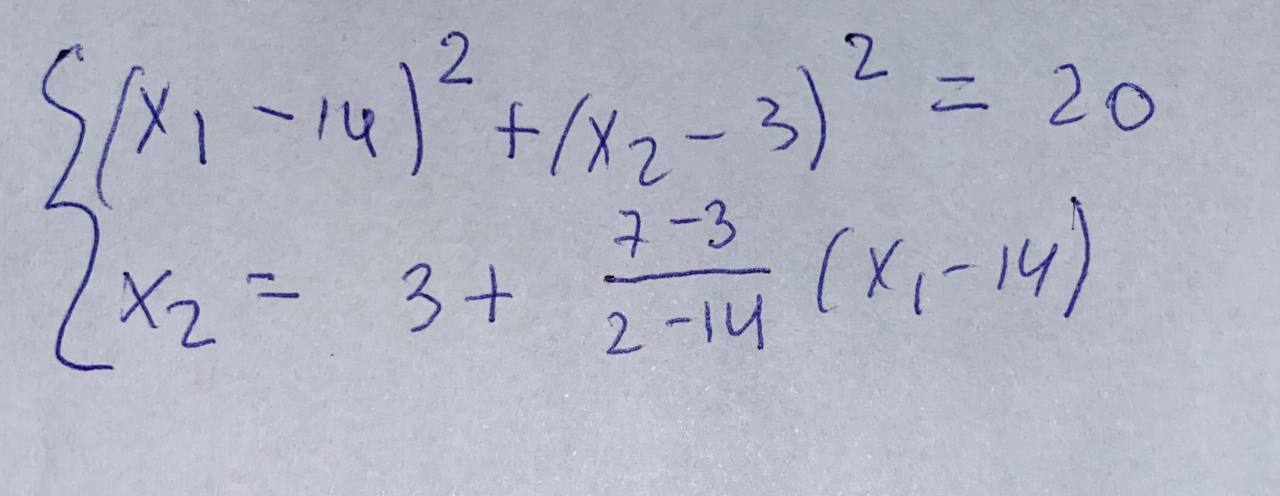 (x₁ - 14)² + (x₂ - 3)² = 20
x₂ = 3 + \frac{7-3}{2-14} (x₁ - 14)